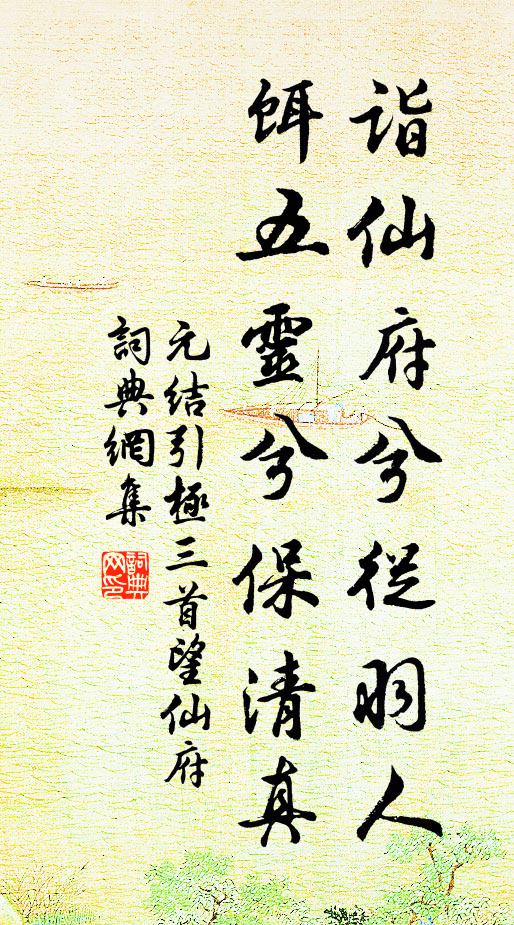 詣仙府兮從羽人
餌五靈兮保清真
元结引極三首望仙府
詞典網集
詞典網印